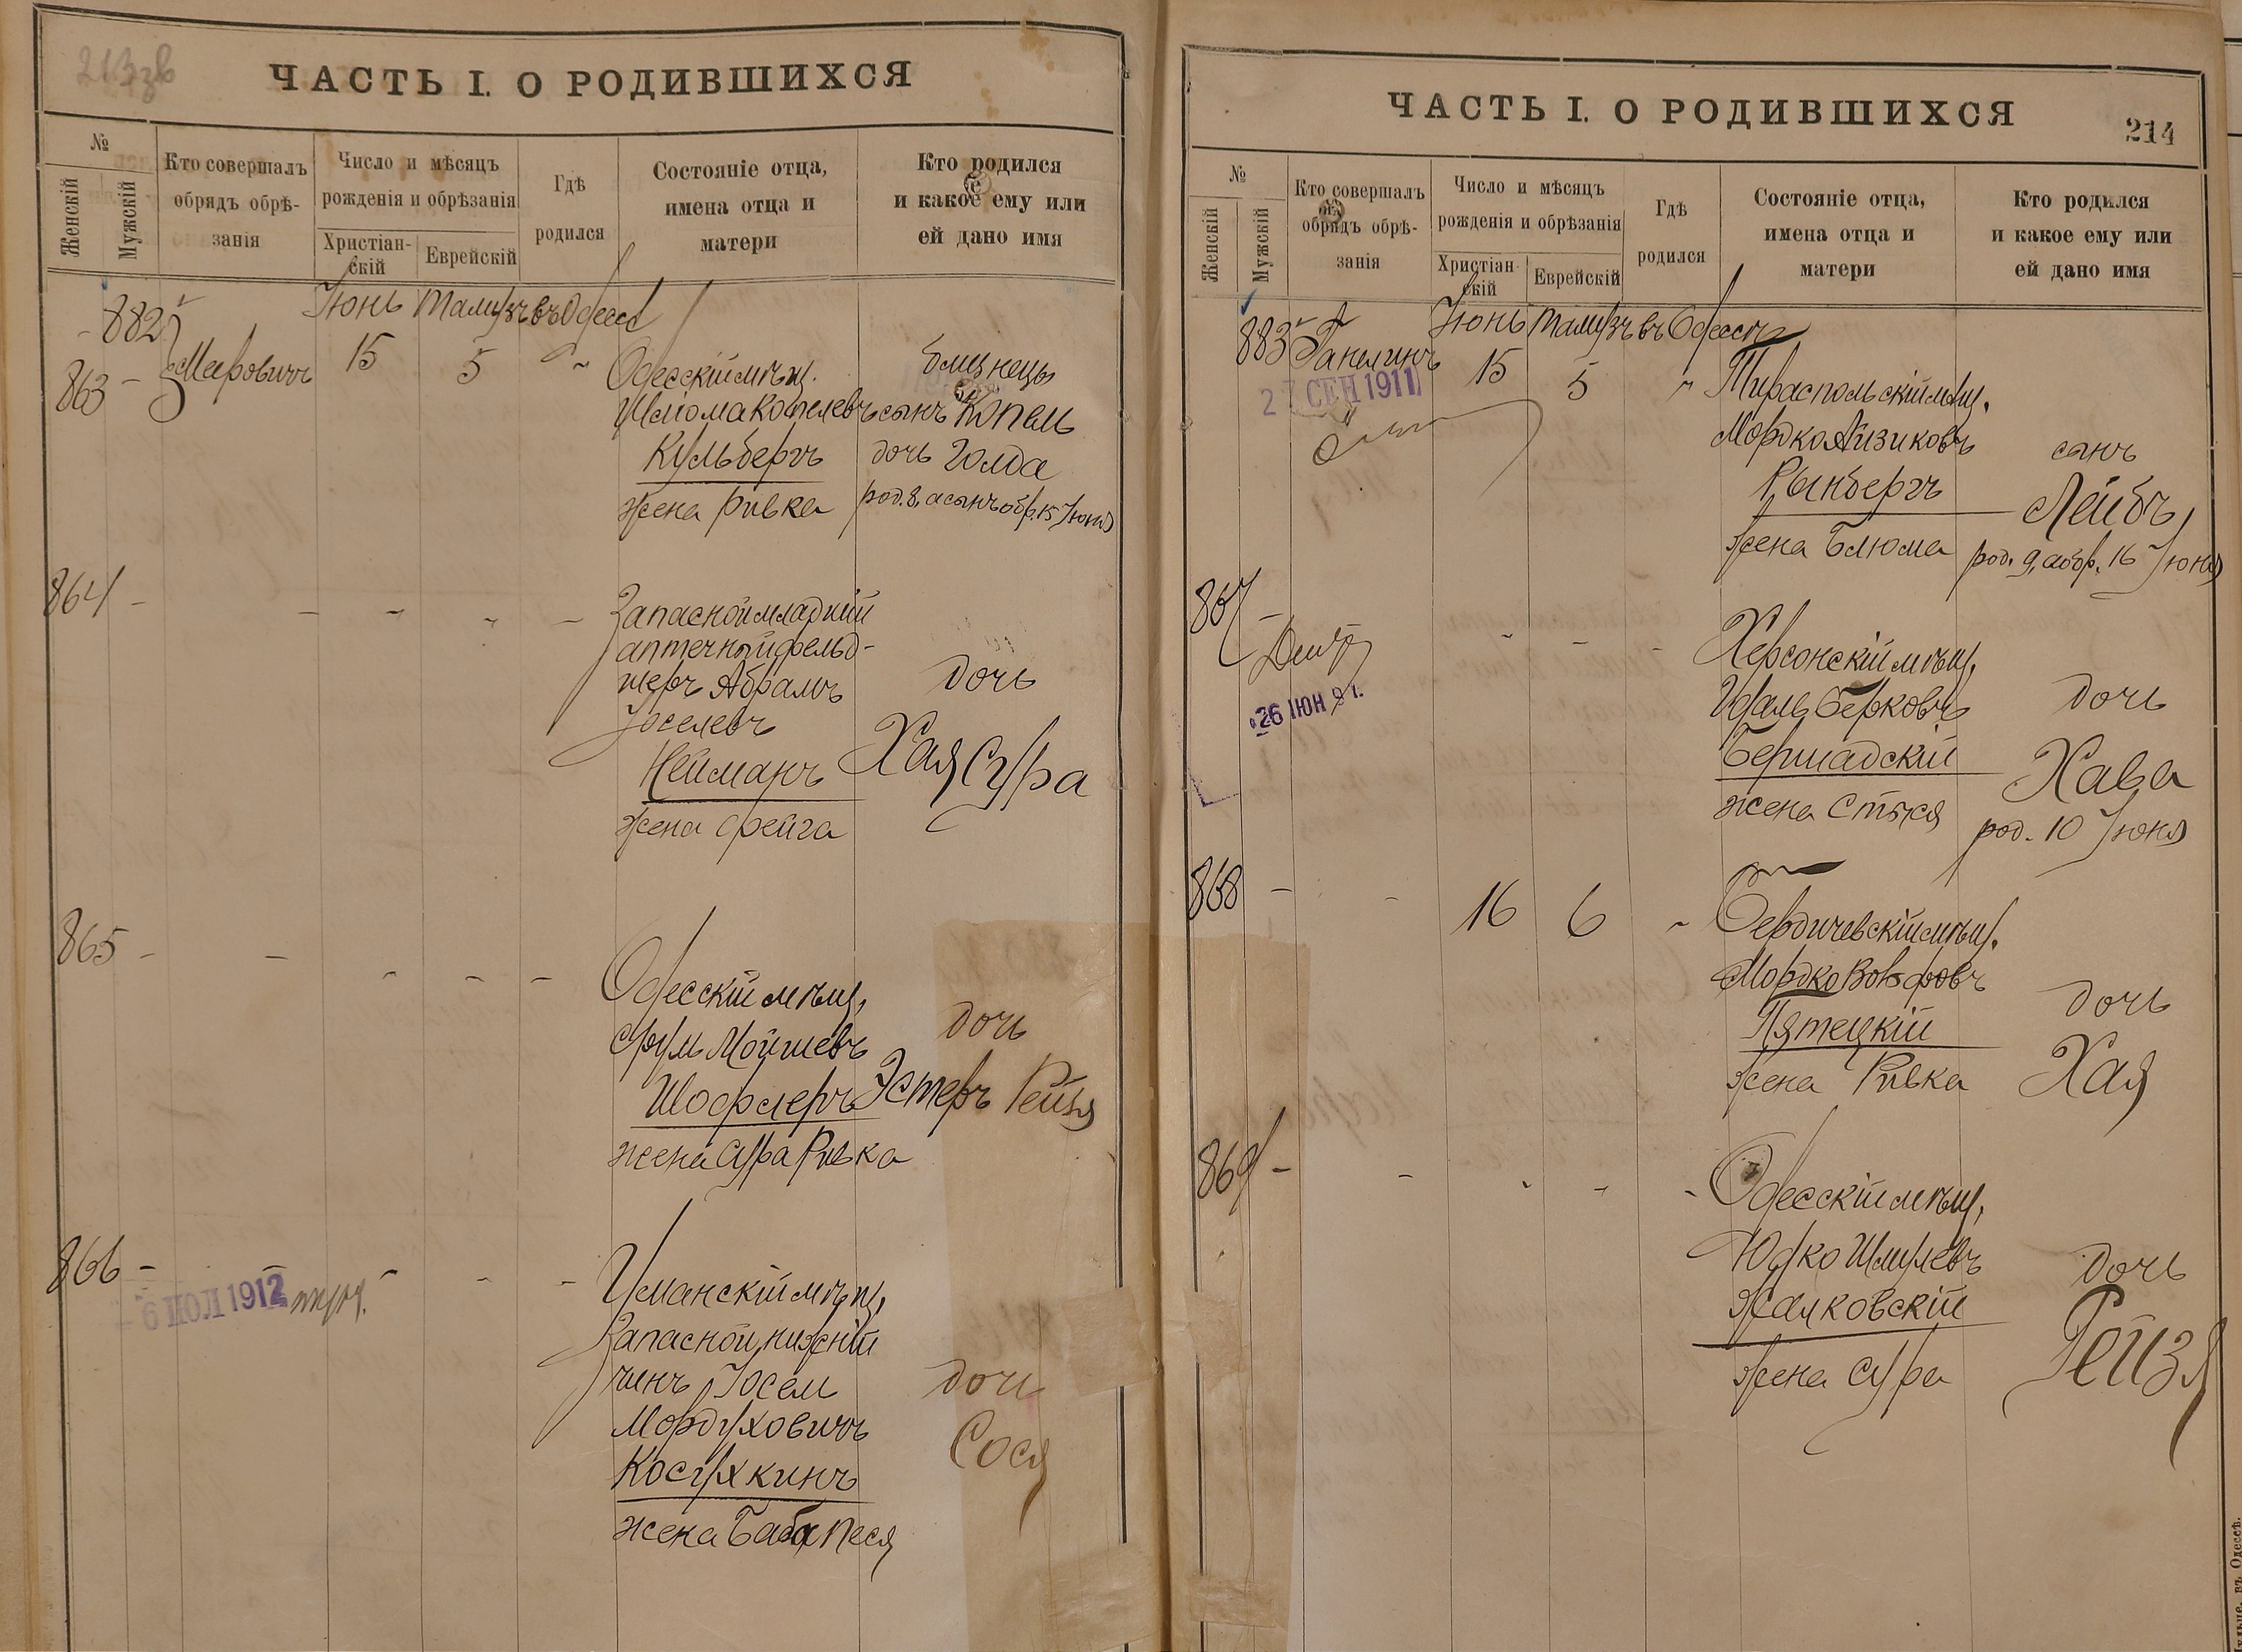 213зв
ЧАСТЬ I. О РОДИВШИХСЯ
№
Женскій
Мужскій
Кто совершалъ
обрядъ обрѣ-
занія
Число и мѣсяцъ
рожденія и обрѣзанія
Христіан-
скій
Еврейскій
Гдѣ
родился
Состояніе отца,
имена отца и
матери
Кто родился
и какое ему или
ей дано имя
Іюнь Тамузъ въ Одессѣ
882
863 - Меерович 15 5 "
Одесскій мѣщ.
Шлiома Копелевъ
Кульбергъ
жена Ривка
близнецы
сынъ Копель
дочь Голда
род. 8, а сынъ обр. 15 Іюня
864 - - - - -
Запасной младшій
аптечный фельд-
шеръ Абрамъ
Іоселевъ
Нейманъ
жена Фейга
дочь
Хая Сура
865 - - - - -
Одесскій мѣщ,
Сруль Мойшевъ
Шофлеръ
жена Сура Ривка
дочь
Эстеръ Рейзя
866 - - - - -
6 ІЮЛ 1912
Уманскій мѣщ,
Запасной нижній
чинъ Іосель
Мордуховичъ
Косухкинъ
жена Баба Песя
дочь
Сося
ЧАСТЬ I. О РОДИВШИХСЯ
214
№
Женскій
Мужскій
Кто совершалъ
обрядъ обрѣ-
занія
Число и мѣсяцъ
рожденія и обрѣзанія
Христіан-
скій
Еврейскій
Гдѣ
родился
Состояніе отца,
имена отца и
матери
Кто родился
и какое ему или
ей дано имя
Іюнь Тамузъ въ Одессѣ
883 Ганелинъ 15 5 "
27 СЕН 1911
Тираспольскій мѣщ.
Мордко Айзиковъ
Рынбергъ
жена Блюма
сынъ
Лейбъ,
род. 9, а обр. 16 Іюня
867 - - - -
26 ІЮН
Херсонскій мѣщ,
Идаль Берковъ
Бершадскій
жена Стыся
дочь
Хава
род. 10 Іюня
868 - - 16 6 "
Бердичевскій мѣщ.
Мордко Вольфовъ
Пятецкій
жена Ривка
дочь
Хая
869 - - - - -
Одесскій мѣщ,
Юдко Шмулевъ
Жалковскій
жена Сура
дочь
Рейзя
въ Одессѣ.